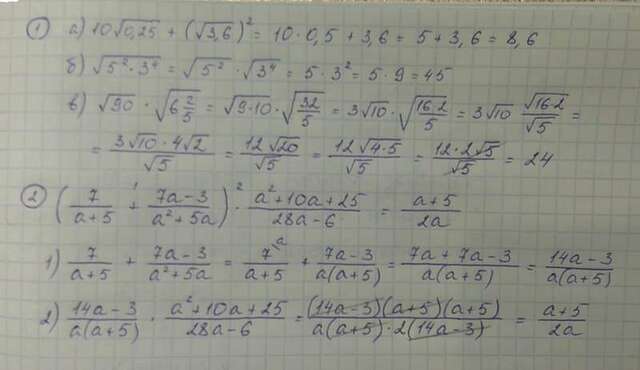 ① а) 10√0,25 + (√3,6)² = 10 · 0,5 + 3,6 = 5 + 3,6 = 8,6
б) √(5² · 3⁴) = √5² · √3⁴ = 5 · 3² = 5 · 9 = 45
в) √90 · √(6 2/5) = √(9·10) · √(32/5) = 3√10 · √(16·2/5) = 3√10 √(16·2)/√5 =
= (3√10 · 4√2)/√5 = 12√20/√5 = 12√(4·5)/√5 = (12·2√5)/√5 = 24
② (7/(a+5) +¹ (7a-3)/(a²+5a)) ·² (a²+10a+25)/(28a-6) = (a+5)/2a
1) 7/(a+5) + (7a-3)/(a²+5a) = 7^a/(a+5) + (7a-3)/(a(a+5)) = (7a+7a-3)/(a(a+5)) = (14a-3)/(a(a+5))
2) (14a-3)/(a(a+5)) · (a²+10a+25)/(28a-6) = ((14a-3)(a+5)(a+5))/(a(a+5)·2(14a-3)) = (a+5)/2a